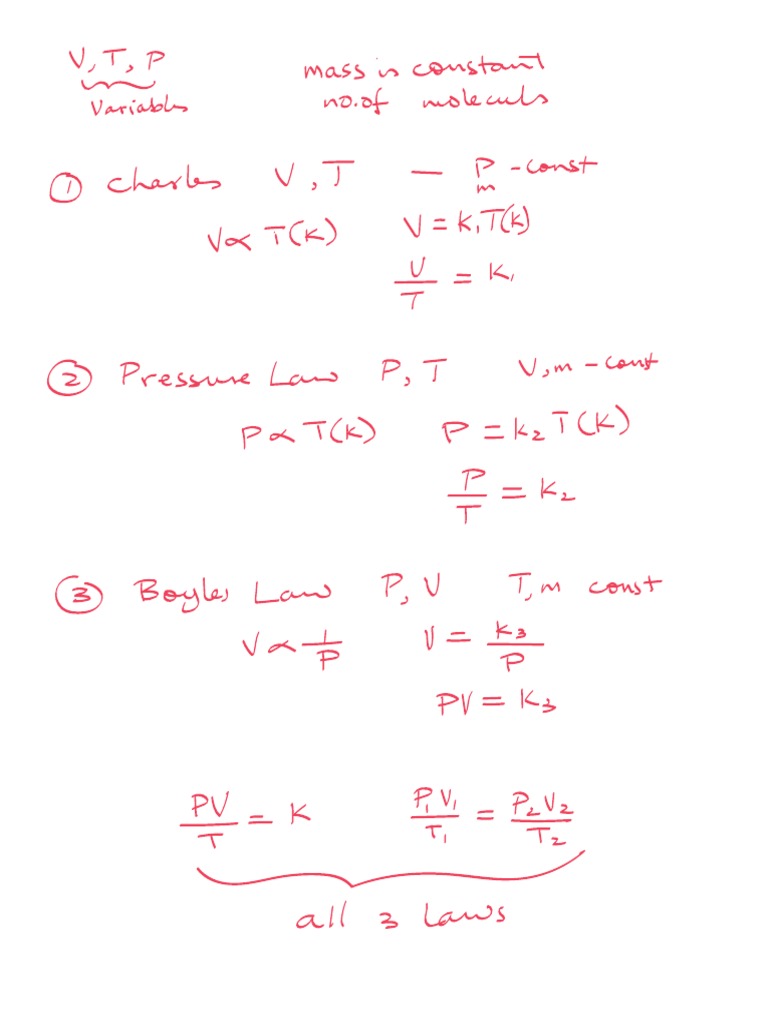 V, T, P mass is constant
Variables no. of moleculs
① Charles V, T — P - const
m
V ∝ T(K) V = K₁T(K)
V/T = K₁
② Pressure Law P, T V, m - const
P ∝ T(K) P = k₂ T(K)
P/T = K₂
③ Boyles Law P, V T, m const
V ∝ 1/P V = K₃/P
PV = K₃
PV/T = K P₁V₁/T₁ = P₂V₂/T₂
all 3 Laws